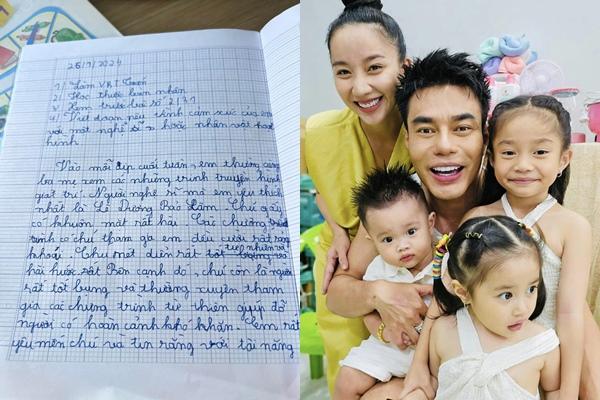 26/7/2024
1/ Làm VBT Toán
2/ Học thuộc bảng nhân
3/ Xem trước bài số 2/31
4/ Viết đoạn nêu tình cảm xúc của em
với một nghệ sĩ hoặc nhân vật hoạt
hình
Vào mỗi dịp cuối tuần, em thường cùng
ba mẹ xem các những trình truyện hình
giải trí. Người nghệ sĩ mà em yêu thích
nhất là Lê Dương Bảo Lâm. Chú ấy
có khuôn mặt rất hài. Cái chương
trình có chú tham gia em đều cười rất sảng
khoái. Chú một diễn rất tự nhiên và
hài hước. Bên cạnh đó, chú còn là người
rất tốt bụng và thường xuyên tham
gia các chương trình từ thiện giúp đỡ
người có hoàn cảnh khó khăn. Em rất
yêu mến chú và tin rằng với tài năng